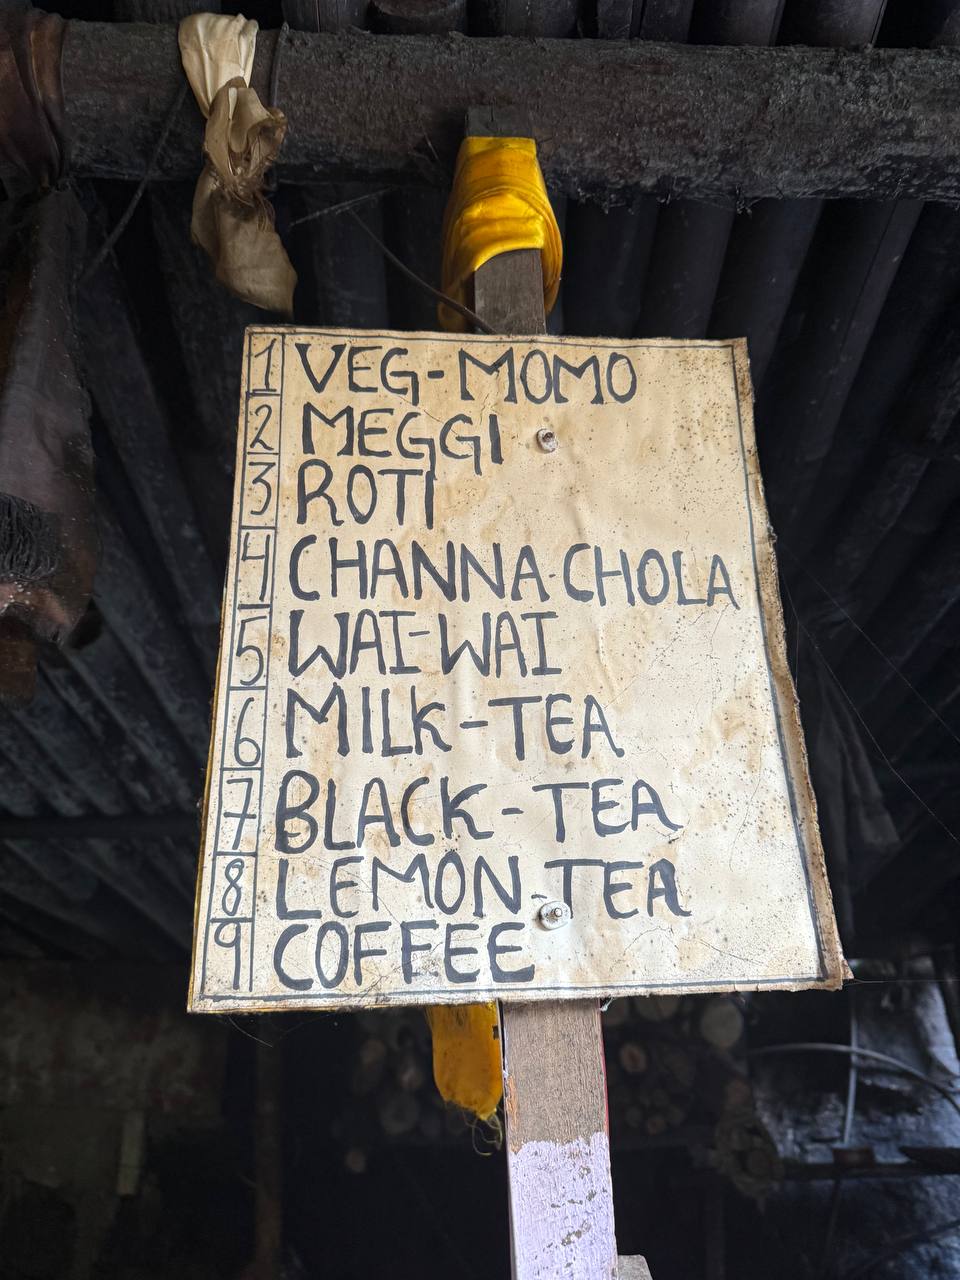 1 VEG-MOMO
2 MEGGI
3 ROTI
4 CHANNA-CHOLA
5 WAI-WAI
6 MILK-TEA
7 BLACK-TEA
8 LEMON-TEA
9 COFFEE